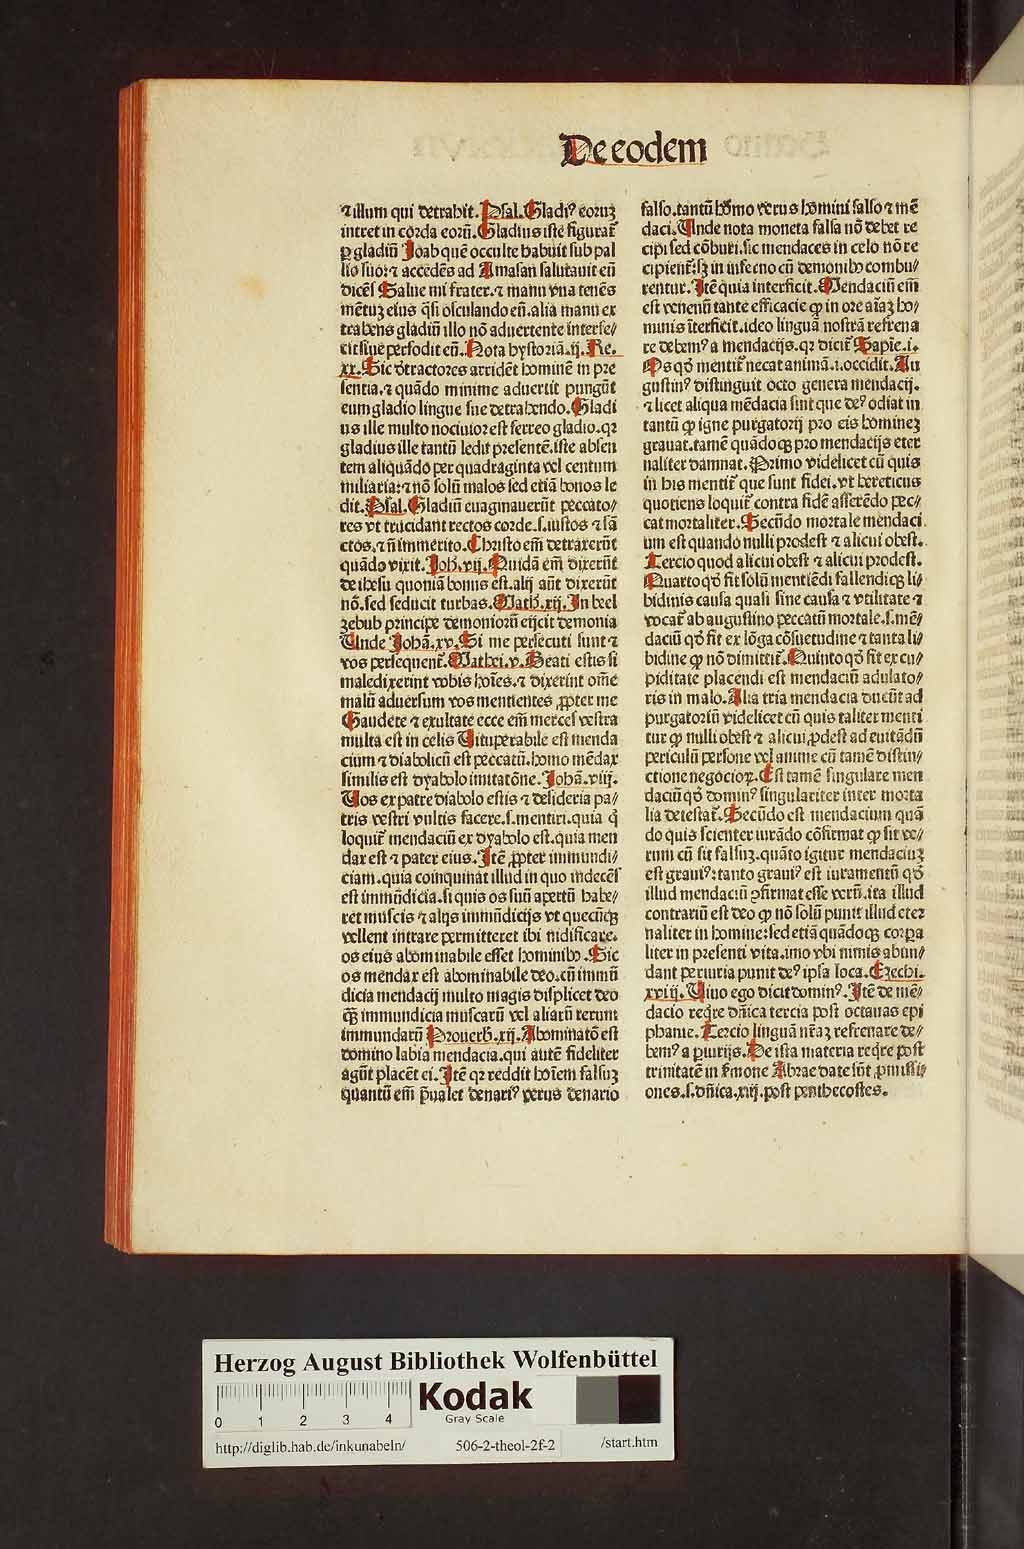 De eodem
⁊ illum qui detrahit. Psal. Gladiꝰ eoruꝫ
intret in corda eorū. Gladius iste figurat᷑
ꝑ gladiū Joab quē occulte habuit sub pal
lio suo: ⁊ accedēs ad Amasan salutauit eū
dicēs Salue mi frater. ⁊ manu vna tenēs
mētuꝫ eius q̄si osculando eū. alia manu ex
trahens gladiū illo nō aduertente interfe/
cit siue perfodit eū. Nota hystoriā. ij. Re.
xx. Sic d̄tractores arridēt hominē in pre
sentia. ⁊ quādo minime aduertit pungūt
eum gladio lingue sue detrahendo. Gladi
us ille multo nociuior est ferreo gladio. qꝛ
gladius ille tantū ledit presentē. iste absen
tem aliquādo per quadraginta vel centum
miliaria: ⁊ nō solū malos sed etiā bonos le
dit. Psal. Gladiū euaginauerūt peccato/
res vt trucidant rectos corde. s. iustos ⁊ sā
ctos. ⁊ nī immerito. Christo em̄ detraxerūt
quādo vixit. Joh. vij. Quidā em̄ dixerūt
de ihesu quoniā bonus est. alij aūt dixerūt
nō. sed seducit turbas. Math. xij. In beel
zebub principe demonioru eijcit demonia
Unde Johā. xv. Si me persecuti sunt ⁊
vos persequent᷑. Mathei. v. Beati estis si
maledixerint vobis hoīes. ⁊ dixerint om̄e
malū aduersum vos mentientes ꝓpter me
Gaudete ⁊ exultate ecce em̄ merces vestra
multa est in celis Uituperabile est menda
cium ⁊ diabolicū est peccatū. homo mēdax
similis est dyabolo imitatōne. Johā. viij.
Uos ex patre diabolo estis ⁊ desideria pa/
tris vestri vultis facere. s. mentiri. quia q̄
loquit᷑ mendaciū ex dyabolo est. quia men
dax est ⁊ pater eius. Itē ꝓpter immundi/
ciam. quia coinquinat illud in quo indecēs
est immūdicia. si quis os suū apertū habe/
ret muscis ⁊ alijs immūdicijs vt quecūqꝫ
vellent intrare permitteret ibi nidificare.
os eius abominabile esset hominibꝰ. Sic
os mendax est abominabile deo. cū immū
dicia mendacij multo magis displicet deo
qꝫ immundicia muscarū vel aliarū rerum
immundarū Prouerb. xij. Abominatō est
domino labia mendacia. qui autē fideliter
agūt placēt ei. Itē qꝛ reddit hoīem falsuꝫ
quantū em̄ p̄ualet denariꝰ verus denario
falso. tantū hōmo verus homini falso ⁊ mē
daci. Unde nota moneta falsa nō debet re
cipi sed cōburi. sic mendaces in celo nō re
cipient᷑: sꝫ in inferno cū demonibꝰ combu/
rentur. Itē quia interficit. Mendaciū em̄
est venenū tante efficacie ꝙ in ore aīaꝫ ho/
minis īterficit. ideo linguā nostrā refrena
re debemꝰ a mendacijs. qꝛ dicit᷑ Sapiē. i.
Os qd̄ mentit᷑ necat animā. i. occidit. Au
gustinꝰ distinguit octo genera mendacij.
⁊ licet aliqua mēdacia sint que deꝰ odiat in
tantū ꝙ igne purgatorij pro eis homineꝫ
grauat. tamē quādoqꝫ pro mendacijs eter
naliter damnat. Primo videlicet cū quis
in his mentit᷑ que sunt fidei. vt hereticus
quotiens loquit᷑ contra fidē asserēdo pec/
cat mortaliter. Secūdo mortale mendaci
um est quando nulli prodest ⁊ alicui obest.
Tercio quod alicui obest ⁊ alicui prodest.
Quarto qd̄ fit solū mentiēdi fallendiqꝫ li/
bidinis causa quasi sine causa ⁊ vtilitate ⁊
vocat᷑ ab augustino peccatū mortale. s. mē/
daciū qd̄ fit ex lōga cōsuetudine ⁊ tanta li/
bidine ꝙ nō dimittit᷑. Quinto qd̄ fit ex cu/
piditate placendi est mendaciū adulato/
ris in malo. Alia tria mendacia ducūt ad
purgatoriū videlicet cū quis taliter menti
tur ꝙ nulli obest ⁊ alicui ꝓdest ad euitādū
periculū persone vel anime cū tamē distin/
ctione negocioꝝ. Est tamē singulare men
daciū qd̄ dominꝰ singulariter inter morta
lia detestat᷑. Secūdo est mendacium quā
do quis scienter iurādo cōfirmat ꝙ sit ve/
rum cū sit falsuꝫ. quāto igitur mendaciuꝫ
est grauiꝰ: tanto grauiꝰ est iuramentū qd̄
illud mendaciū ꝯfirmat esse verū. ita illud
contrariū est deo ꝙ nō solū punit illud eter
naliter in homine: sed etiā quādoqꝫ corpa
liter in presenti vita. imo vbi nimis abun/
dant periuria punit deꝰ ipsa loca. Ezechi.
xvij. Uiuo ego dicit dominꝰ. Itē de mē/
dacio req̄re dn̄ica tercia post octauas epi
phanie. Tercio linguā nr̄aꝫ refrenare de/
bemꝰ a ꝑiurijs. De ista materia req̄re post
trinitatē in ẜmone Abrae date sūt ꝓmissi/
ones. s. dn̄ica. xiij. post penthecostes.
Herzog August Bibliothek Wolfenbüttel
0 1 2 3 4
Kodak
Gray Scale
http://diglib.hab.de/inkunabeln/ 506-2-theol-2f-2 /start.htm